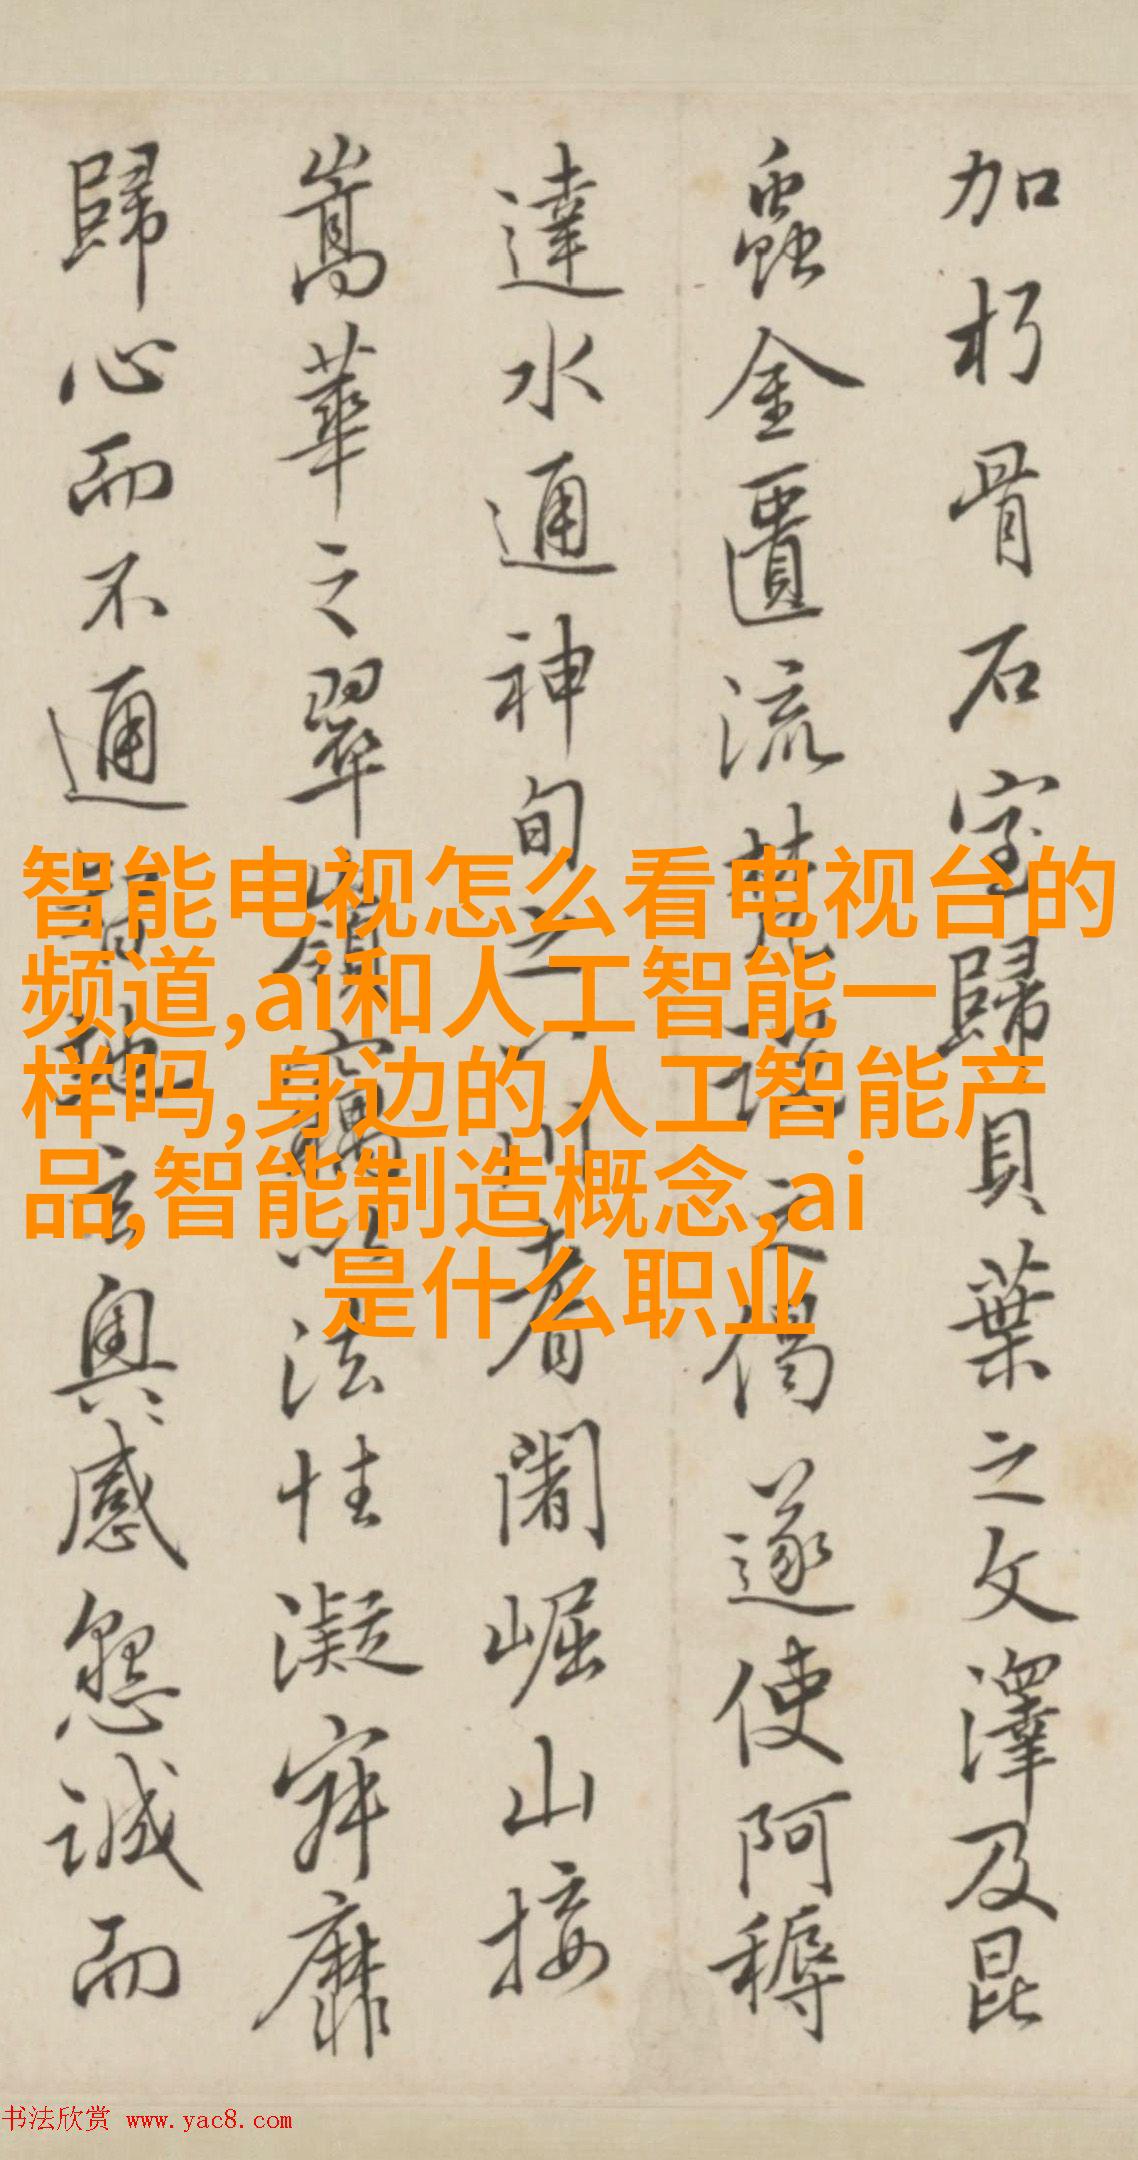 加朽骨石室歸貝葉之文澤及昆
蟲金匱流梵說之偈遂使阿耨
達水通神甸之八川耆闍崛山接
嵩華之翠嶺竊以法性凝寂靡
歸心而不通智地玄奧感懇誠而
智能电视怎么看电视台的
频道,ai和人工智能一
样吗,身边的人工智能产
品,智能制造概念,ai
是什么职业
书法欣赏 www.yac8.com